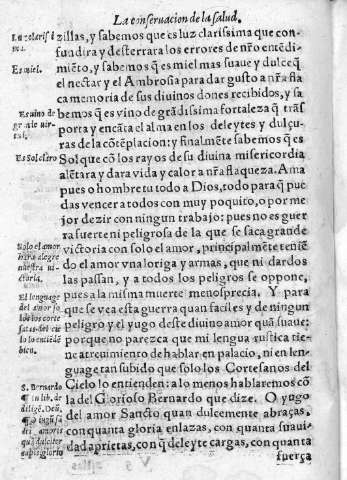 La conseruacion de la salud.
zillas, y sabemos que es luz clarissima que con-
fundira y desterrara los errores de nr̃o entẽdi-
miẽto, y sabemos q̃ es miel mas suaue y dulce q̃
el nectar y el Ambrosia para dar gusto a nr̃a fla
ca memoria de sus diuinos dones recibidos, y sa
bemos q̃ es vino de grãdissima fortaleza q̃ trãs
porta y encãta el alma en los deleytes y dulçu-
ras de la cõtẽplacion; y finalmẽte sabemos q̃ es
Sol que cõ los rayos de su diuina misericordia
alẽtara y dara vida y calor a nr̃a flaqueza. Ama
pues o hombre tu todo a Dios, todo para q̃ pue
das vencer a todos con muy poquito, o por me
jor dezir con ningun trabajo: pues no es guer
ra suerte ni peligrosa de la que se saca grande
victoria con solo el amor, principalmẽte teniẽ-
do el amor vna loriga y armas, que ni dardos
las passan, y a todos los peligros se oppone,
pues a la misma muerte menosprecia. Y para
que se vea esta guerra quan facil es y de ningun
peligro y el yugo deste diuino amor quã suaue;
porque no parezca que mi lengua rustica tie-
ne atreuimiento de hablar en palacio, ni en len-
guage tan subido que solo los Cortesanos del
Cielo lo entienden: a lo menos hablaremos cõ
la del Glorioso Bernardo que dize. O yugo
del amor Sancto quan dulcemente abraças,
con quanta gloria enlazas, con quanta suaui-
dad aprietas, con q̃ deleyte cargas, con quanta
fuerça
Es miel.
Es vino de
Es Sol claro
Solo el amor
nuestra
El lenguage
del amor so
lo los corte
lo lo entiendẽ
bien.
S. Bernardo
in lib. de
dilig. Deũ,